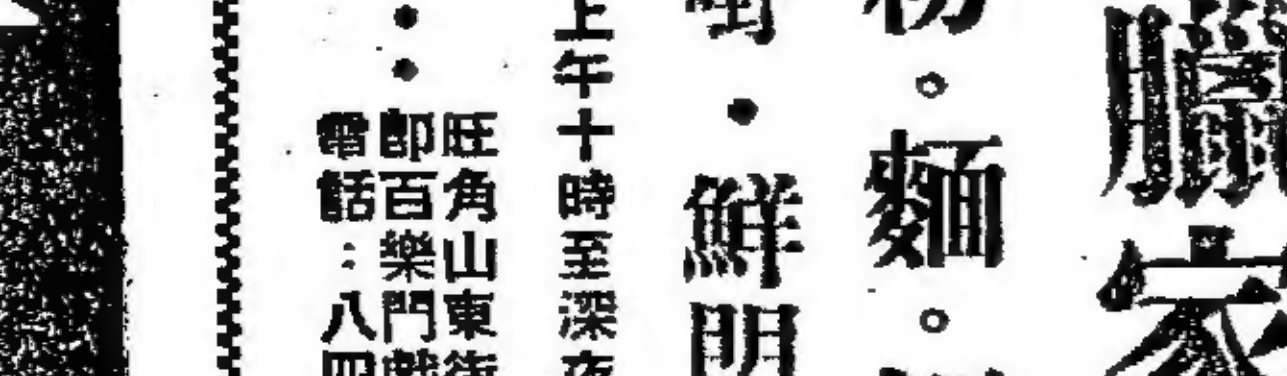 臘家
粉。麵。
・鮮明
上午十時至深夜
旺角山東街
••即百樂門戲
電話：八四